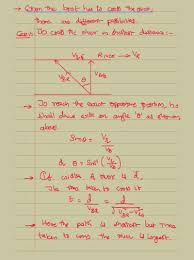 → When the boat has to cross the river,
there are different possibilities.
Case:- To cross the river in shortest distance:-
River → VR
VBR
VB
θ
→ To reach the exact opposite position, he
should drive at an angle 'θ' as shown
above
Sinθ = VR/VBR
& θ = Sin⁻¹(VR/VBR)
→ If width of river is d,
the time taken to cross it
t = d/VB = d/√V²BR-V²R
→ Here the path is shortest but time
taken to cross the river is largest.